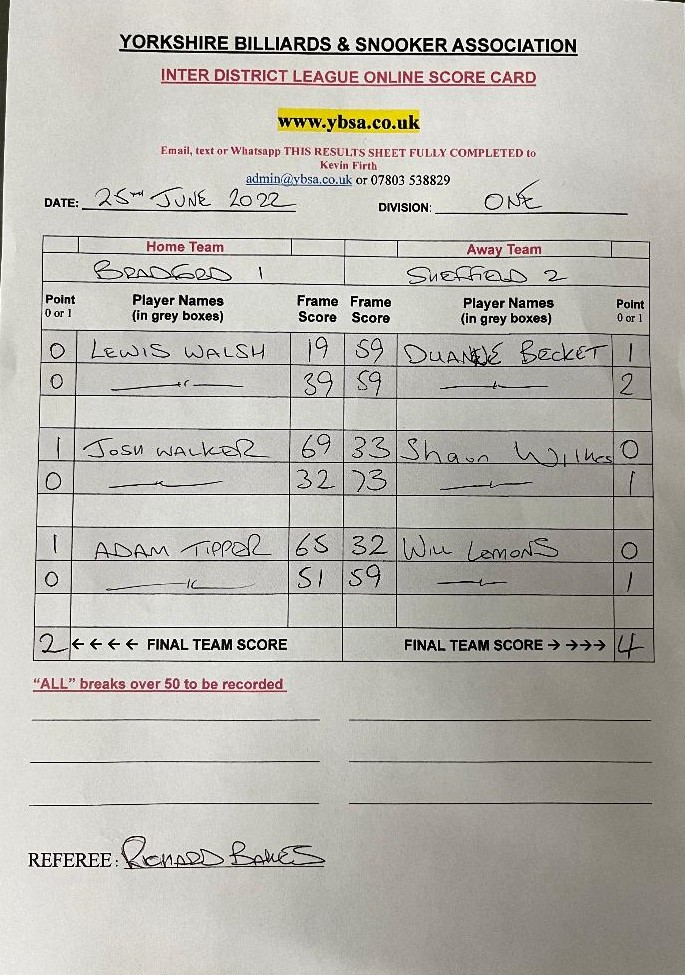 YORKSHIRE BILLIARDS & SNOOKER ASSOCIATION
INTER DISTRICT LEAGUE ONLINE SCORE CARD
www.ybsa.co.uk
Email, text or Whatsapp THIS RESULTS SHEET FULLY COMPLETED to
Kevin Firth
admin@ybsa.co.uk or 07803 538829
DATE: 25TH JUNE 2022 DIVISION: ONE
Home Team Away Team
BRADFORD 1 SHEFFIELD 2
Point Player Names Frame Frame Player Names Point
0 or 1 (in grey boxes) Score Score (in grey boxes) 0 or 1
0 LEWIS WALSH 19 59 DUANE BECKET 1
0 —"— 39 59 —"— 2
1 JOSH WALKER 69 33 Shaun Wilkes 0
0 —"— 32 73 —"— 1
1 ADAM TIPPER 65 32 WILL LEMONS 0
0 —"— 51 59 —"— 1
2 ← ← ← ← FINAL TEAM SCORE FINAL TEAM SCORE → →→→ 4
"ALL" breaks over 50 to be recorded
REFEREE: RICHARD